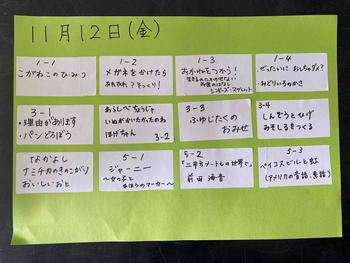 11月12日(金)
1-1
こがねこのひみつ
1-2
メガネをかけたら
あれあれ?そっくり!
1-3
おかねをつかう!
1-4
ぜったいに おしちゃダメ?
おどりいろのかさ
3-1
・3理由があります
・パンどろぼう
わらしべちょうじゃ
いぬがかいたかったのね
はげちゃん
3-2
3-3
ふゆじたくの
おみせ
3-4
しんぞうとひげ
みそしるをつくる
なかよし
ナミチカのきのこがり
おいしいおと
5-1
ジャーニー
〜女の子と
まほうのマーカー〜
5-2
「二平方メートルの世界で」
前田 海音
5-3
ペイコスビルと虹
(アメリカの昔話、素話)